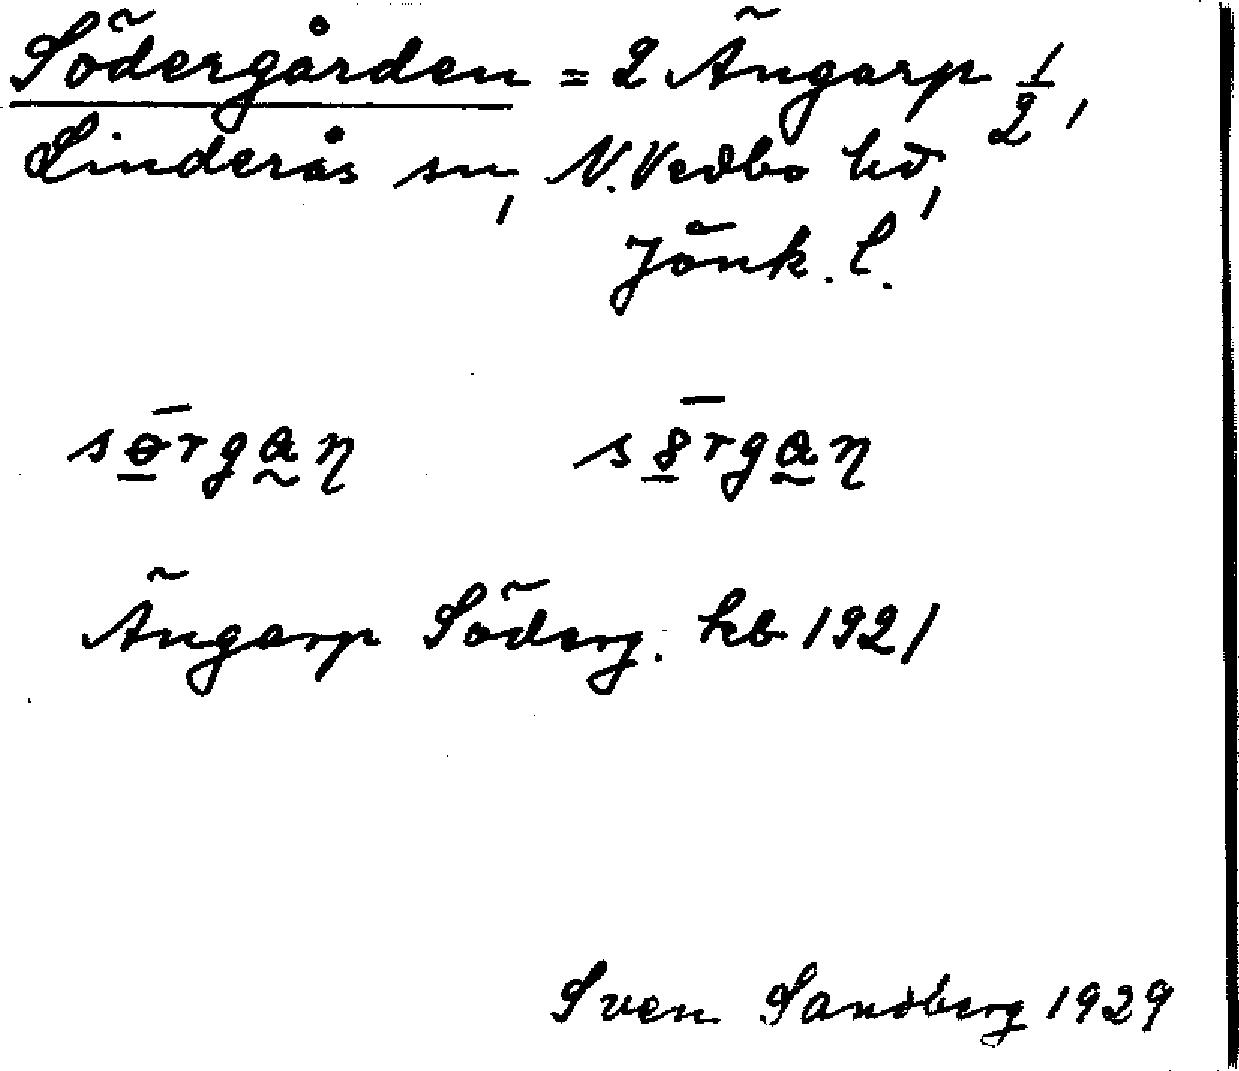 Södergården = 2 Ängarp 1/2,
Linderås sn, N. Vedbo hd,
Jönk. l.
sɵ̄rgan sȣ̄rgan
Ängarp Söderg. kb 1921
Sven Sandberg 1929